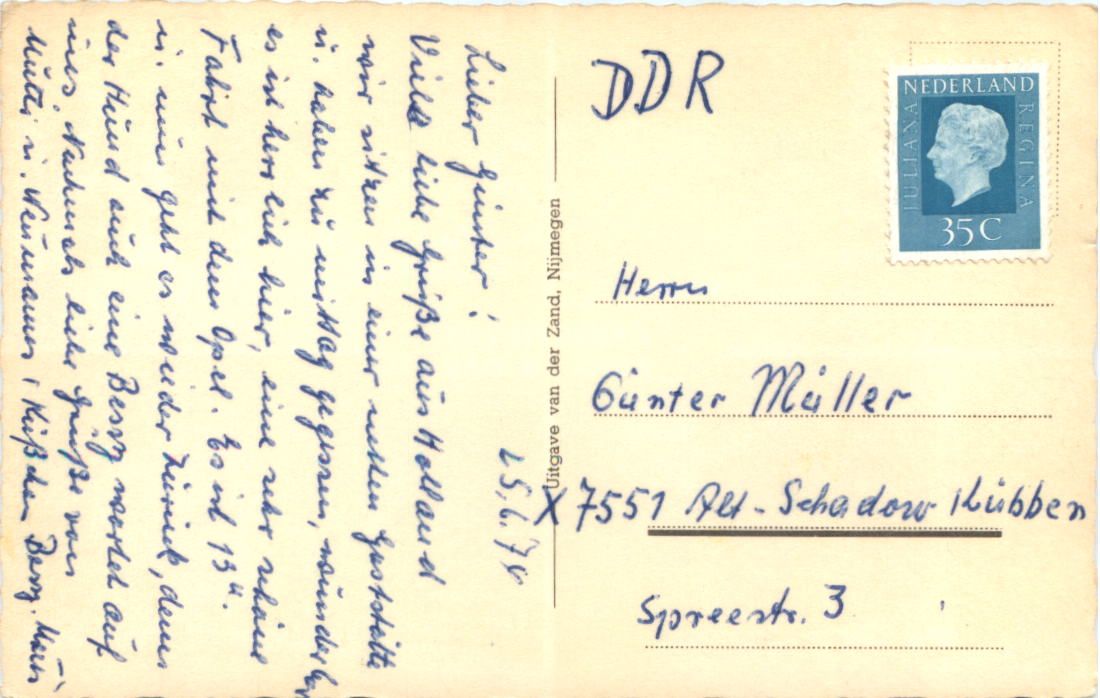 25.6.78
Lieber Günter!
Viele liebe Grüße aus Holland
wir sitzen in einer netten Gaststätte
u. haben zu mittag gegessen, wunderbar
es ist herrlich hier, eine sehr schöne
Fahrt mit dem Opel. Es ist 13 u.
u. nun geht es wieder zurück, denn
der Hund auch eine Bessy wartet auf
uns. Nochmals liebe Grüße von
Mutti u. Küßchen Bessy.
DDR
NEDERLAND
JULIANA
REGINA
35 C
Uitgave van der Zand, Nijmegen
Herrn
Günter Müller
X 7551 Alt-Schadow /Lübben
Spreestr. 3